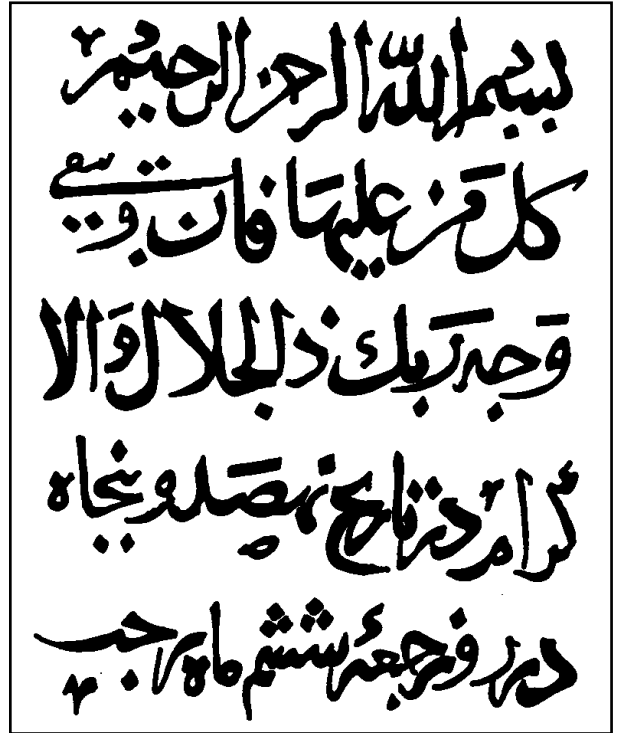 بسم الله الرحمن الرحيم
كل من عليها فان و يبقى
وجه ربك ذلجلال والا
كرام در تاريخ نهصد و پنجاه
در روز جمعه ششم ماه رجب